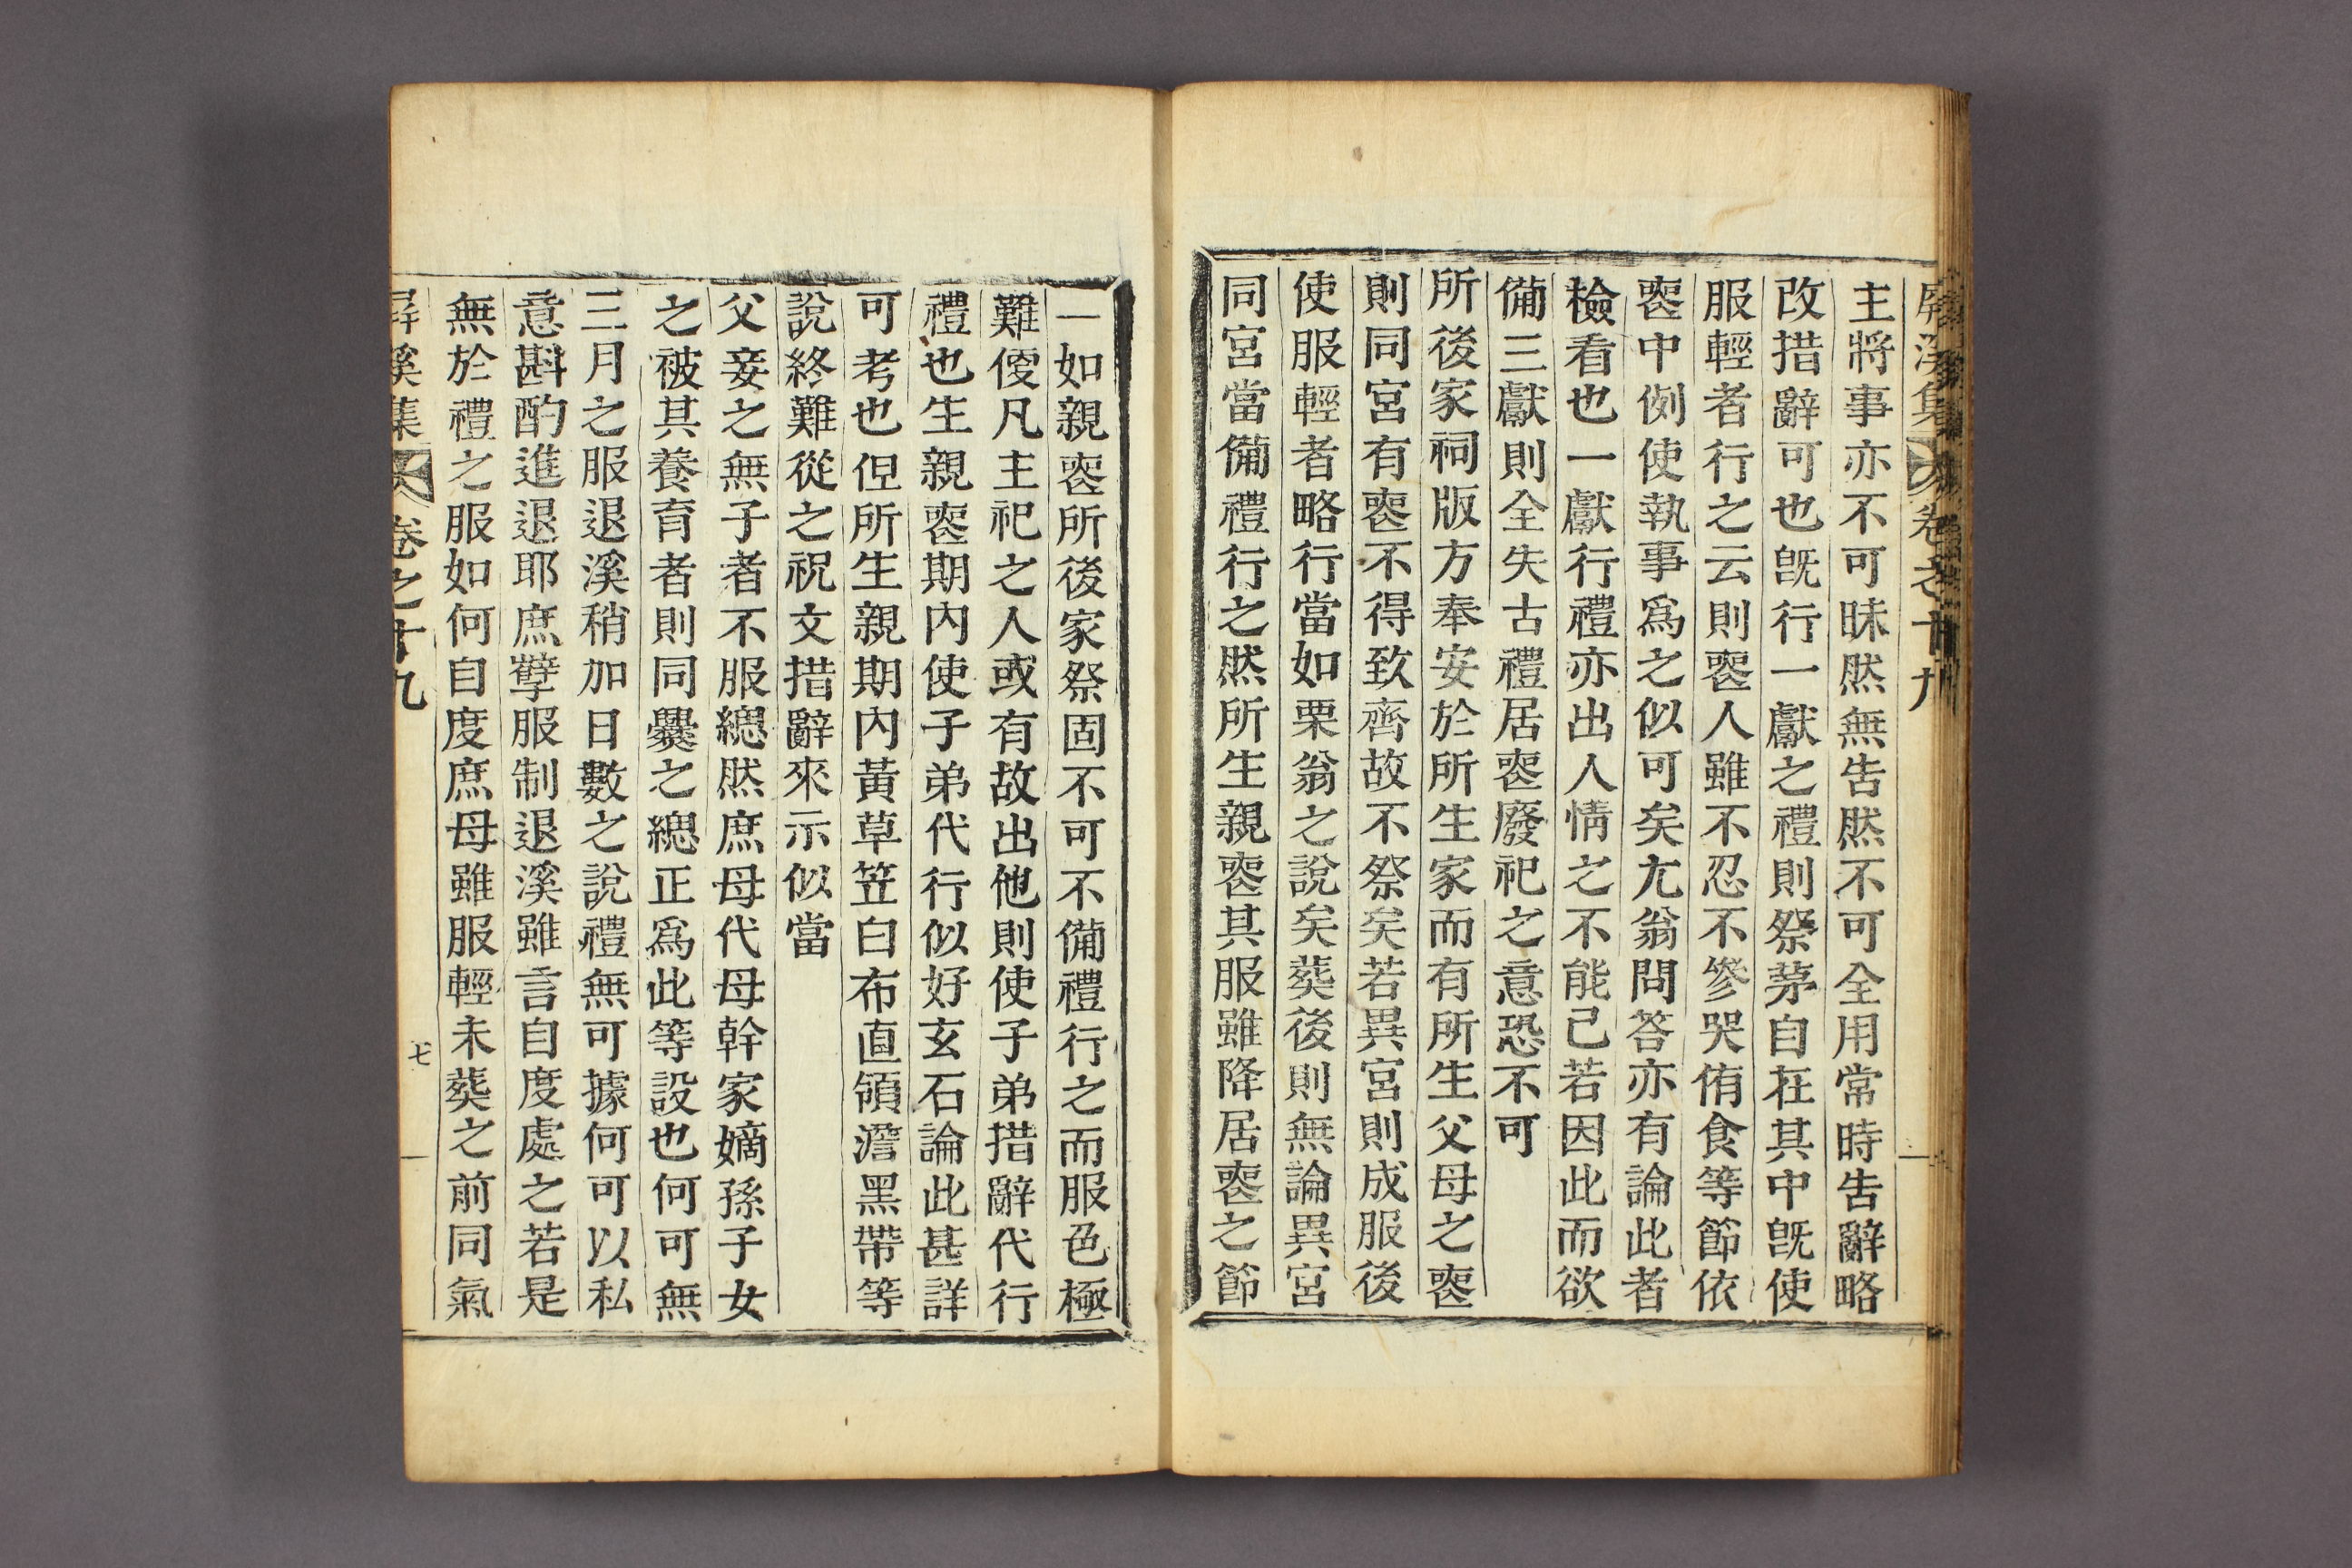 屛溪集 卷之十九
主將事亦不可昧然無告然不可全用常時告辭略
改措辭可也旣行一獻之禮則祭茅自在其中旣使
服輕者行之云則喪人雖不忍不參哭侑食等節依
喪中例使執事爲之似可矣尤翁問答亦有論此者
檢看也一獻行禮亦出人情之不能已若因此而欲
備三獻則全失古禮居喪廢祀之意恐不可
所後家祠版方奉安於所生家而有所生父母之喪
則同宮有喪不得致齊故不祭矣若異宮則成服後
使服輕者略行當如栗翁之說矣葬後則無論異宮
同宮當備禮行之然所生親喪其服雖降居喪之節
一如親喪所後家祭固不可不備禮行之而服色極
難便凡主祀之人或有故出他則使子弟措辭代行
禮也生親喪期內使子弟代行似好玄石論此甚詳
可考也但所生親期內黃草笠白布直領澹黑帶等
說終難從之祝文措辭來示似當
父妾之無子者不服緦然庶母代母幹家嫡孫子女
之被其養育者則同爨之緦正爲此等設也何可無
三月之服退溪稍加日數之說禮無可據何可以私
意斟酌進退耶庶孼服制退溪雖言自度處之若是
無於禮之服如何自度庶母雖服輕未葬之前同氣
屛溪集 卷之十九 七